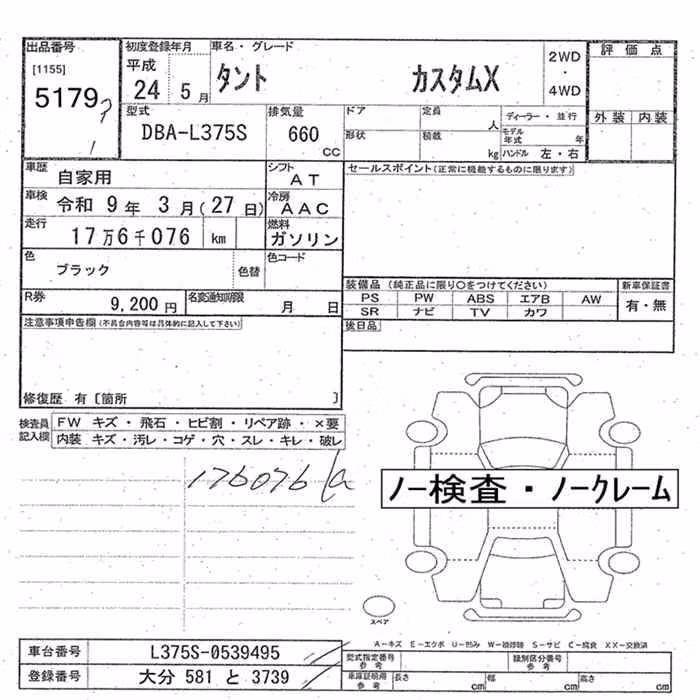 出品番号
[1155]
5179
初度登録年月
平成
24 5月
車名・グレード
タント カスタムX
2WD
・
4WD
評価点
外装 内装
型式
DBA-L375S
排気量
660
CC
ドア
定員
人
形状
積載
kg
ディーラー・並行
モデル
年式 年
ハンドル 左・右
車歴
自家用
シフト
AT
車検
令和 9年 3月(27日)
冷房
AAC
走行
17万6千076 km
燃料
ガソリン
色
ブラック
色替
色コード
R券
9,200円
名変通知期限
月 日
セールスポイント(正常に機能するものに限ります)
装備品 (純正品に限り○をつけてください)
新車保証書
PS PW ABS エアB AW
SR ナビ TV カワ
有・無
後日品
注意事項申告欄(不具合内容等は具体的に記入して下さい)
修復歴 有〔箇所 〕
検査員
記入欄
FW キズ・飛石・ヒビ割・リペア跡・×要
内装 キズ・汚レ・コゲ・穴・スレ・キレ・破レ
176076
ノー検査・ノークレーム
スペア
A-キズ E-エクボ U-凹み W-補修跡 S-サビ C-腐食 XX-交換済
車台番号
L375S-0539495
登録番号
大分 581 と 3739
型式指定番号
参考
類別区分番号
参考
車庫証明用
参考
長さ cm 幅 cm 高さ cm